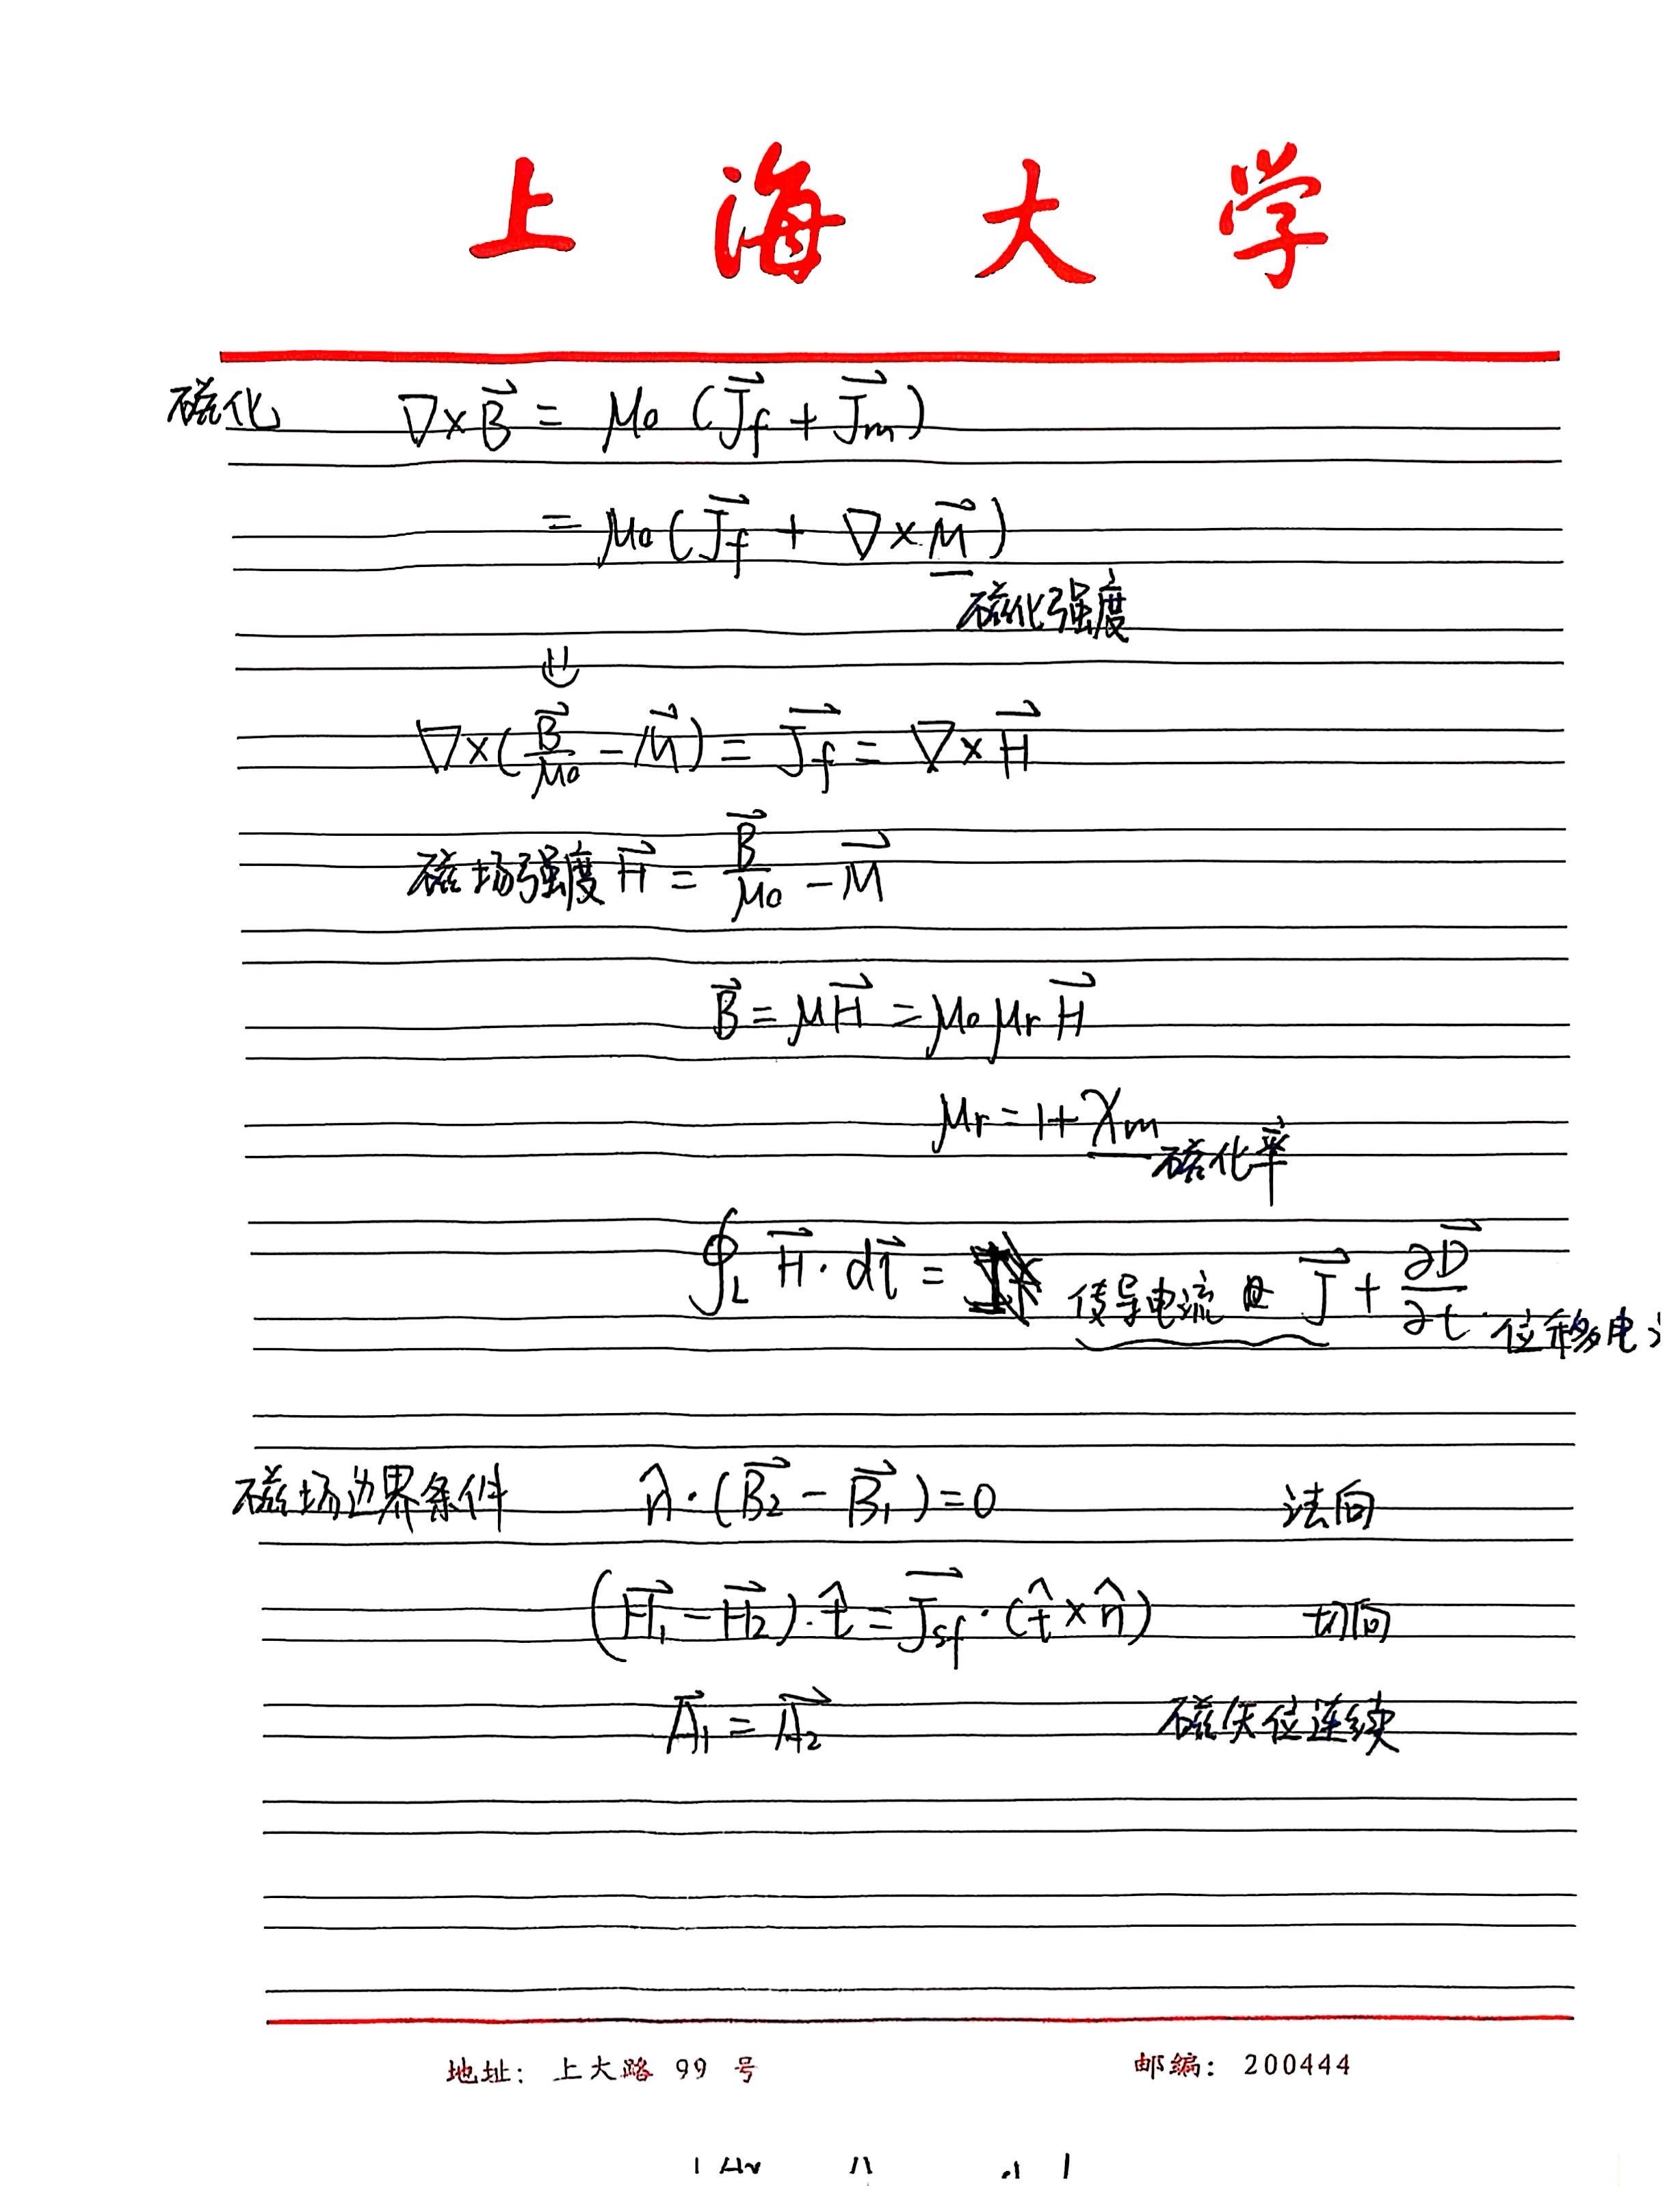 上海大学
磁化 ∇×B⃗ = μ₀ (J⃗f + J⃗m)
= μ₀ (J⃗f + ∇×M⃗)
磁化强度
⇓
∇×(B⃗/μ₀ − M⃗) = J⃗f = ∇×H⃗
磁场强度 H⃗ = B⃗/μ₀ − M⃗
B⃗ = μH⃗ = μ₀μrH⃗
μr = 1+χm
磁化率
∮L H⃗·dl⃗ = 传导电流 J⃗ + ∂D⃗/∂t 位移电
磁场边界条件 n̂·(B⃗₂ − B⃗₁)=0 法向
(H⃗₁ − H⃗₂)·t̂ = J⃗sf·(t̂×n̂) 切向
A⃗₁ = A⃗₂ 磁矢位连续
地址：上大路 99 号 邮编：200444